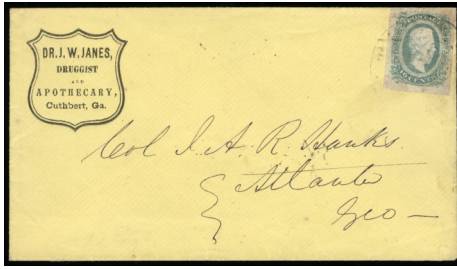 DR. J. W. JANES,
DRUGGIST
AND
APOTHECARY,
Cuthbert, Ga.
Col J. A. R. Hanks.
Atlanta
Geo —